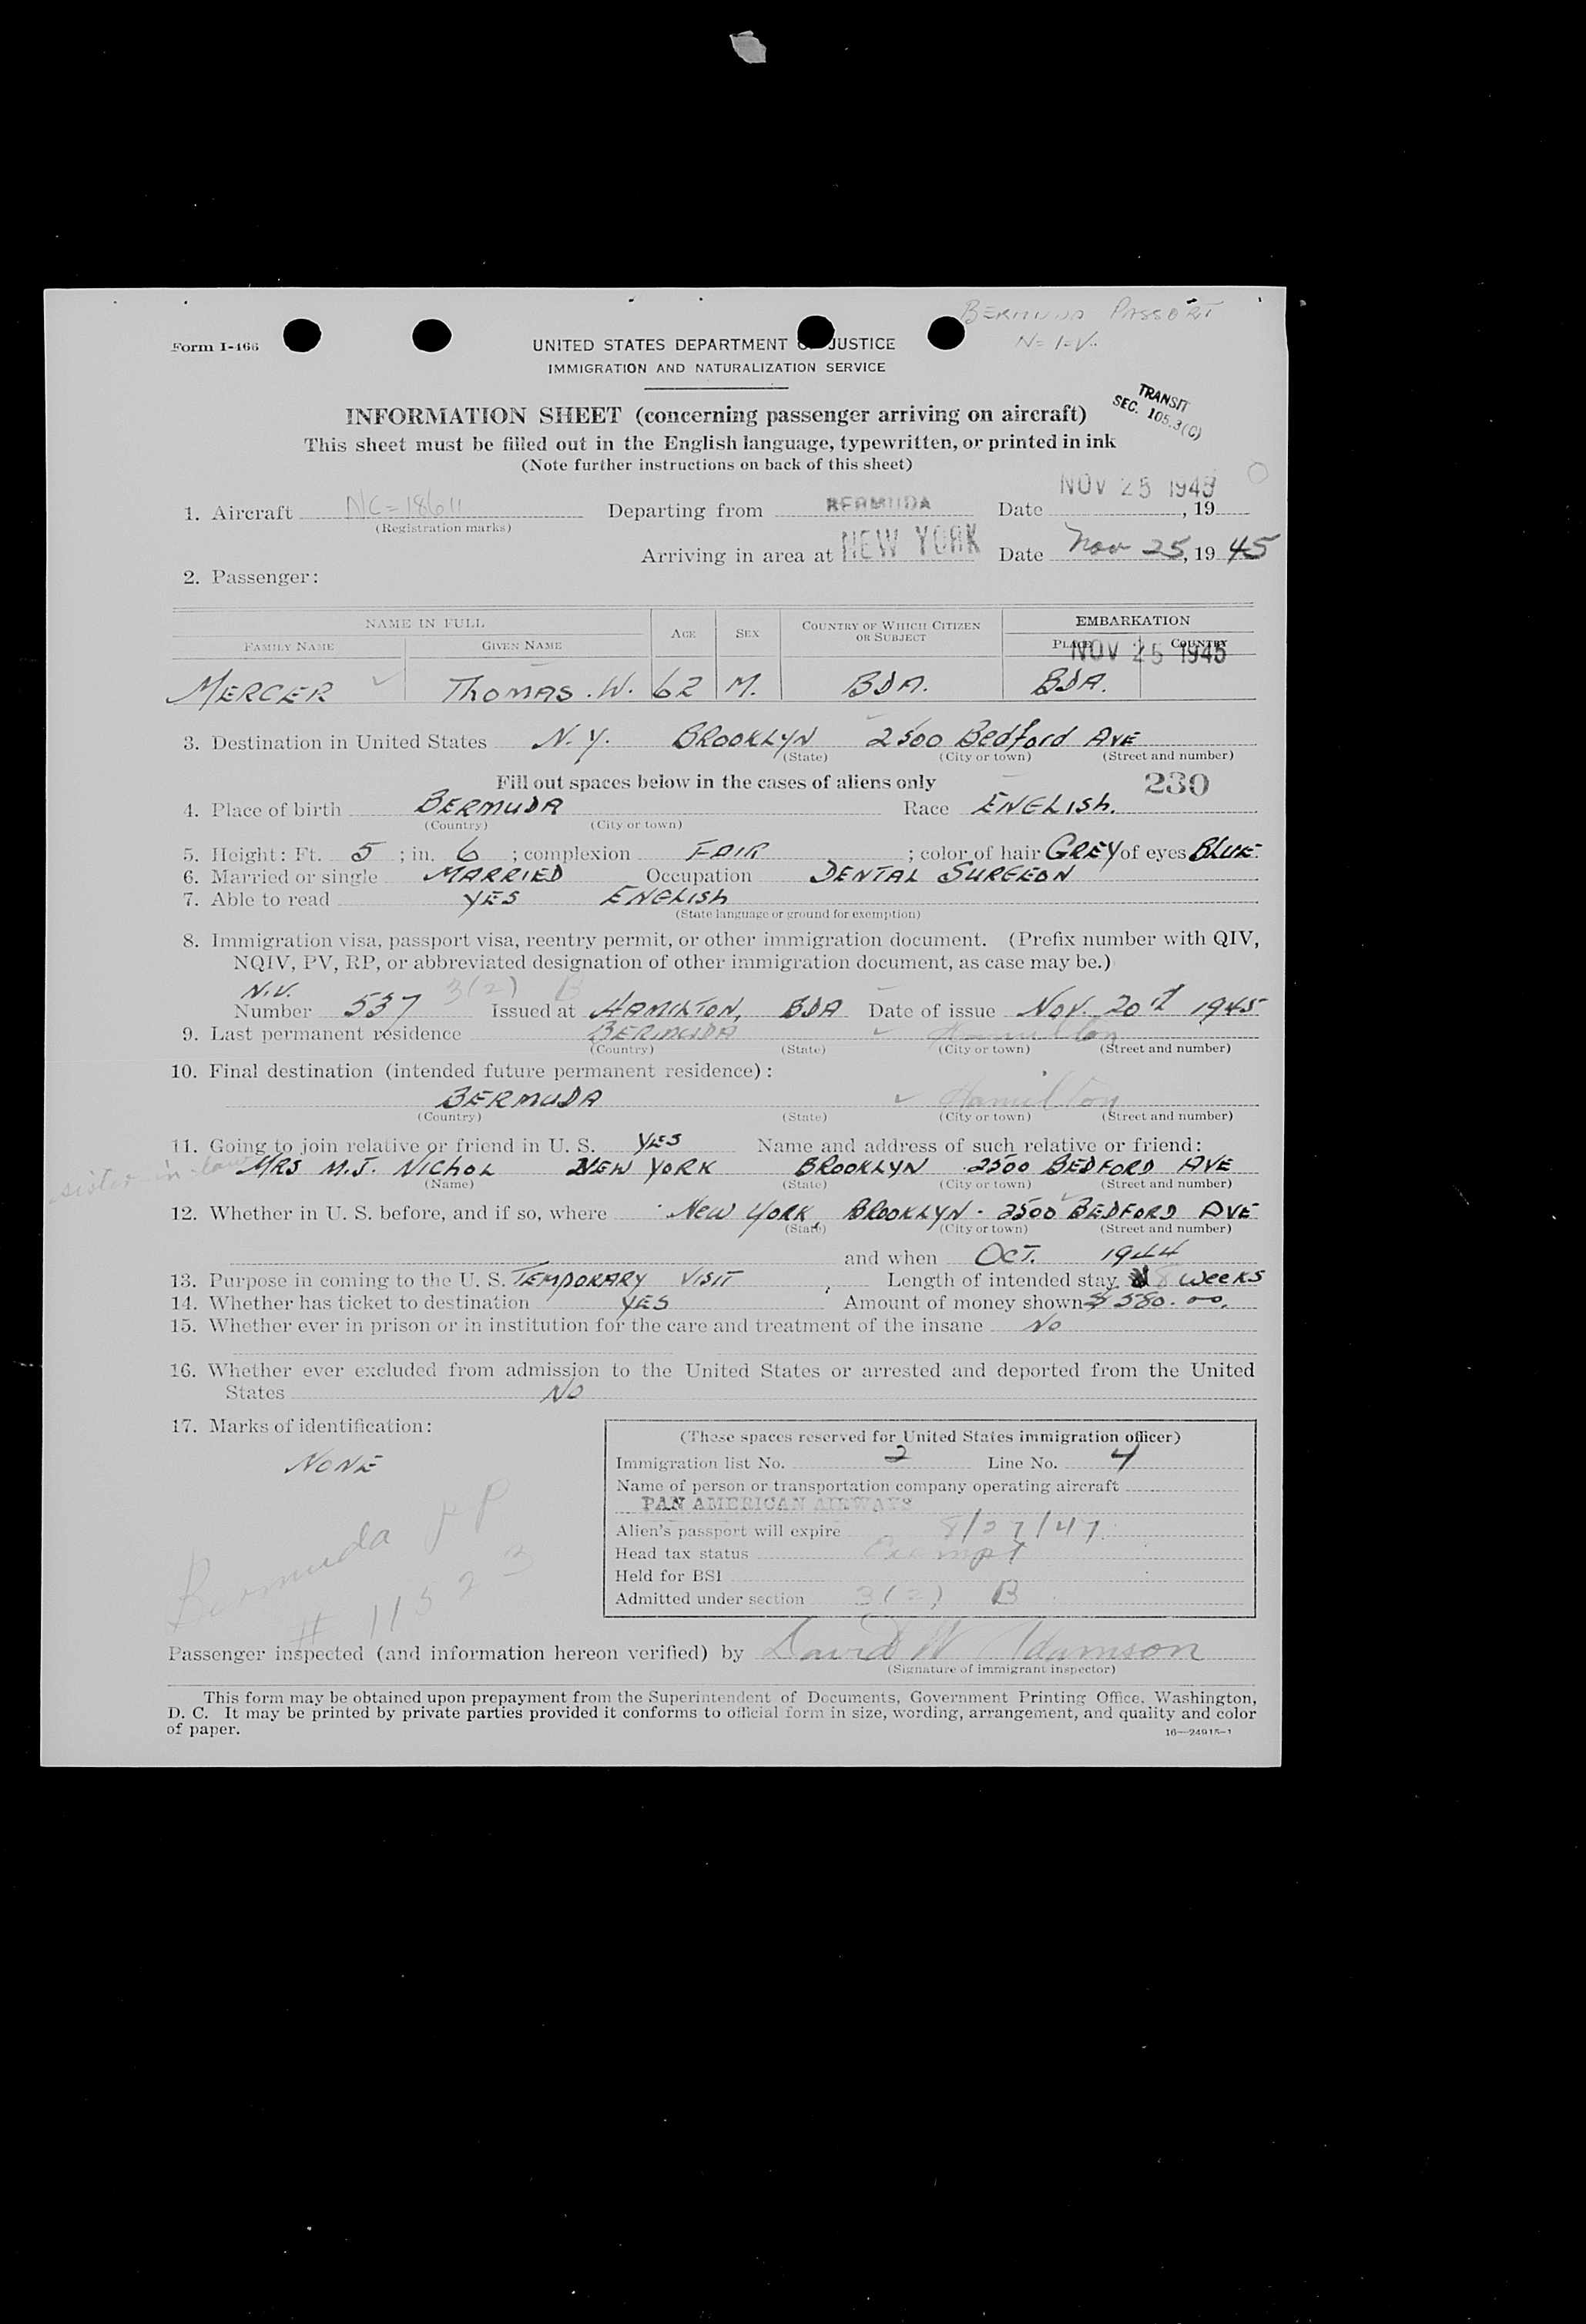 BERMUDA PASSORT
N-I-V.
Form I-466
UNITED STATES DEPARTMENT OF JUSTICE
IMMIGRATION AND NATURALIZATION SERVICE
TRANSIT
SEC. 105.3(C)
INFORMATION SHEET (concerning passenger arriving on aircraft)
This sheet must be filled out in the English language, typewritten, or printed in ink
(Note further instructions on back of this sheet)
NOV 25 1945
1. Aircraft NC-18611 Departing from BERMUDA Date , 19
(Registration marks)
Arriving in area at NEW YORK Date Nov 25, 19 45
2. Passenger:
NAME IN FULL AGE SEX COUNTRY OF WHICH CITIZEN OR SUBJECT EMBARKATION
FAMILY NAME GIVEN NAME PLACE COUNTRY
NOV 25 1945
MERCER THOMAS. W. 62 M. BDA. BDA.
3. Destination in United States N.Y. BROOKLYN 2500 Bedford AVE
(State) (City or town) (Street and number)
Fill out spaces below in the cases of aliens only 230
4. Place of birth BERMUDA Race ENGLISH.
(Country) (City or town)
5. Height: Ft. 5 ; in. 6 ; complexion FAIR ; color of hair GREY of eyes BLUE.
6. Married or single MARRIED Occupation DENTAL SURGEON
7. Able to read YES ENGLISH
(State language or ground for exemption)
8. Immigration visa, passport visa, reentry permit, or other immigration document. (Prefix number with QIV,
NQIV, PV, RP, or abbreviated designation of other immigration document, as case may be.)
N.V. 3(2) B
Number 537 Issued at HAMILTON, BDA Date of issue NOV. 20th 1945
9. Last permanent residence BERMUDA Hamilton
(Country) (State) (City or town) (Street and number)
10. Final destination (intended future permanent residence):
BERMUDA Hamilton
(Country) (State) (City or town) (Street and number)
11. Going to join relative or friend in U. S. YES Name and address of such relative or friend:
sister-in-law MRS M.J. NICHOL NEW YORK BROOKLYN 2500 BEDFORD AVE
(Name) (State) (City or town) (Street and number)
12. Whether in U. S. before, and if so, where New YORK, BROOKLYN. 2500 BEDFORD AVE
(State) (City or town) (Street and number)
and when OCT. 1944
13. Purpose in coming to the U. S. TEMPORARY VISIT, Length of intended stay 8 weeks
14. Whether has ticket to destination YES Amount of money shown $ 580.00.
15. Whether ever in prison or in institution for the care and treatment of the insane No
16. Whether ever excluded from admission to the United States or arrested and deported from the United
States No
17. Marks of identification:
NONE
Bermuda PP
# 11523
(These spaces reserved for United States immigration officer)
Immigration list No. 2 Line No. 4
Name of person or transportation company operating aircraft
PAN AMERICAN AIRWAYS
Alien's passport will expire 8/27/47
Head tax status Exempt
Held for BSI
Admitted under section 3(2) B
Passenger inspected (and information hereon verified) by David W Adamson
(Signature of immigrant inspector)
This form may be obtained upon prepayment from the Superintendent of Documents, Government Printing Office, Washington,
D. C. It may be printed by private parties provided it conforms to official form in size, wording, arrangement, and quality and color
of paper. 16—24915-1